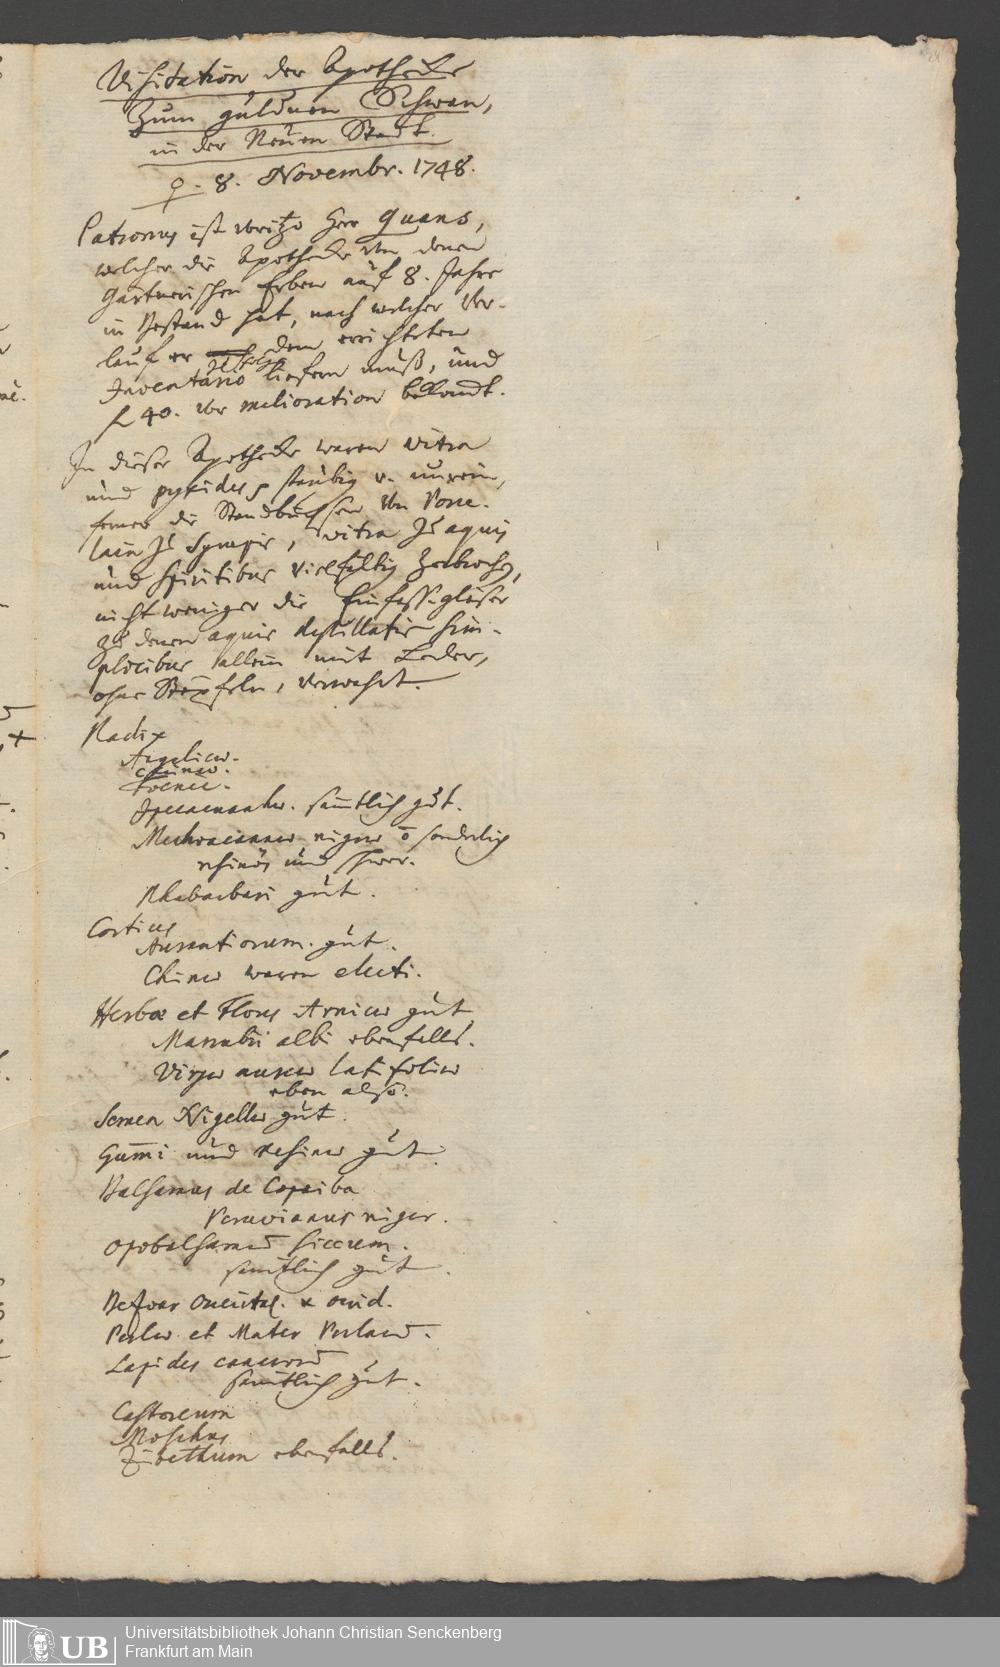 Visitation der Apothecke
Zum guldnen Schwan,
in der Neuen Stadt.
♀. 8. Novembr. 1748.
Patronus ist Herr Quans,
welcher die Apothecke von denen
Gärtnerischen Erben auf 8. Jahre
in Bestand hat, nach welcher Ver-
lauf er dem errichteten
Inventario liefern muß, und
f. 40. vor melioration bekomt.
In dieser Apothecke waren vitra
und pyxides staubig v. unrein,
ferner die Standbüchsen von Porce-
lain zu Syrupis, vitra zu aquis
und spiritibus vielfältig zerbrochen,
nicht weniger die Einfassgläser
zu denen aquis destillatis sim-
plicibus allein mit Leder,
ohne Stöpseln, verwahrt.
Radix
Angelicæ.
Chinæ.
Foenic.
Ipecacuanhæ. sämtlich gut.
Mechoacannæ nigræ o sonderlich
resinös und schwer.
Rhabarbari gut.
Cortices
Aurantiorum. gut.
Chinæ waren electi.
Herbæ et Flores Arnicæ gut
Marrubii albi ebenfalls.
Virgæ aureæ latifoliæ
eben also.
Semen Nigellæ gut.
Gum̄i und resinæ gut.
Balsamus de Copaiba
Peruvianus niger.
Opobalsamum siccum.
sämtlich gut.
Bezoar Oriental. & occid.
Perlæ et Mater Perlarum.
Lapides cancrorum
sämtlich gut.
Castoreum
Moschus
Zibethum ebenfalls.
UB
Universitätsbibliothek Johann Christian Senckenberg
Frankfurt am Main